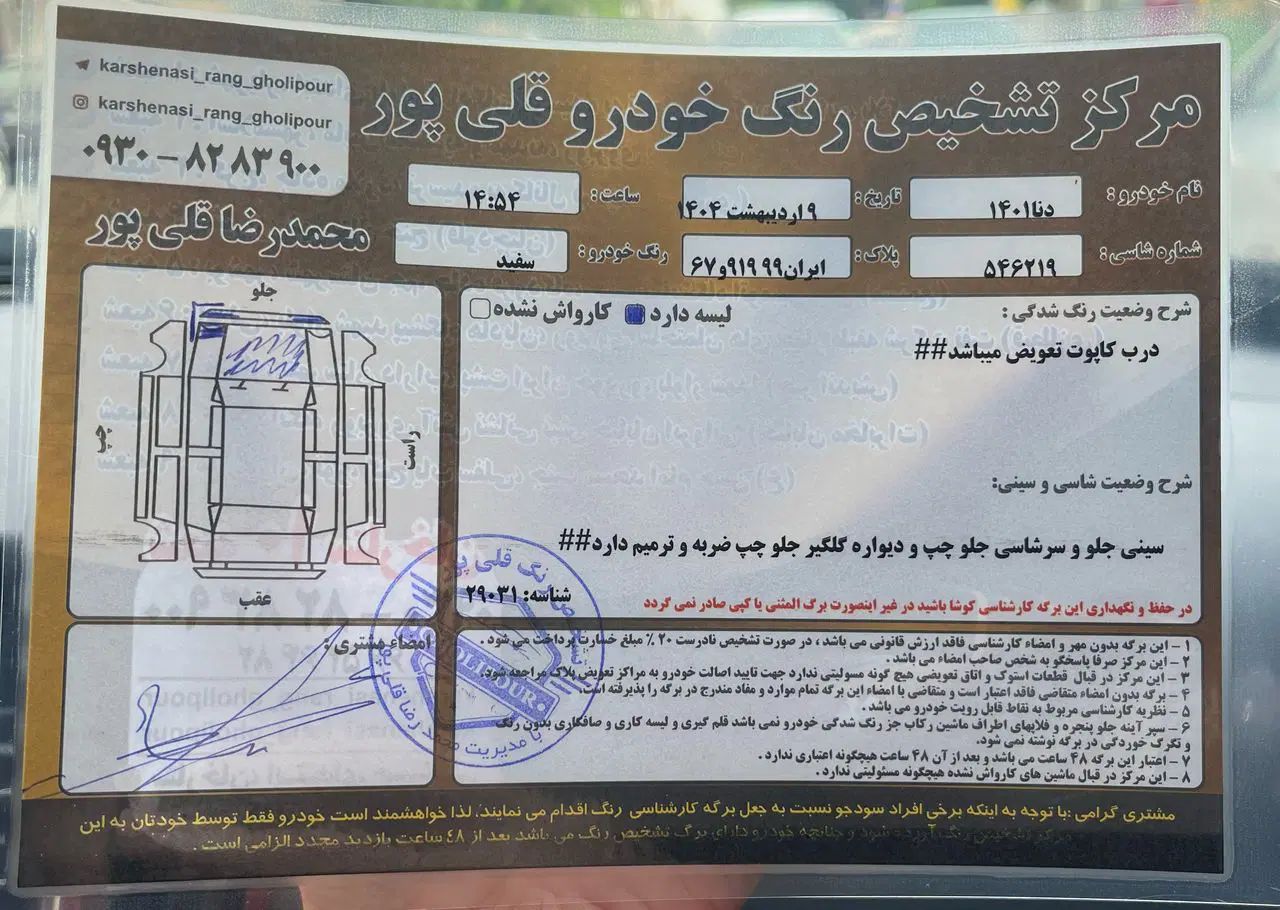 karshenasi_rang_gholipour
karshenasi_rang_gholipour
۰۹۳۰ – ۸۲ ۸۳ ۹۰۰
مرکز تشخیص رنگ خودرو قلی پور
محمدرضا قلی پور
نام خودرو : دنا۱۴۰۱
تاریخ : ۹ اردیبهشت ۱۴۰۴
ساعت : ۱۴:۵۴
شماره شاسی : ۵۴۶۲۱۹
پلاک : ایران۹۹ ۹۱۹و۶۷
رنگ خودرو : سفید
جلو
چپ
راست
عقب
شرح وضعیت رنگ شدگی :
لیسه دارد
کارواش نشده
درب کاپوت تعویض میباشد##
شرح وضعیت شاسی و سینی:
سینی جلو و سرشاسی جلو چپ و دیواره گلگیر جلو چپ ضربه و ترمیم دارد##
شناسه: ۲۹۰۳۱
در حفظ و نگهداری این برگه کارشناسی کوشا باشید در غیر اینصورت برگ المثنی یا کپی صادر نمی گردد
امضاء مشتری :
۱ – این برگه بدون مهر و امضاء کارشناسی فاقد ارزش قانونی می باشد ، در صورت تشخیص نادرست ۲۰ ٪ مبلغ خسارت پرداخت می شود .
۲ – این مرکز صرفا پاسخگو به شخص صاحب امضاء می باشد .
۳ – این مرکز در قبال قطعات استوک و اتاق تعویضی هیچ گونه مسولیتی ندارد جهت تایید اصالت خودرو به مراکز تعویض پلاک مراجعه شود.
۴ – برگه بدون امضاء متقاضی فاقد اعتبار است و متقاضی با امضاء این برگه تمام موارد و مفاد مندرج در برگه را پذیرفته است.
۵ – نظریه کارشناسی مربوط به نقاط قابل رویت خودرو می باشد .
۶ – سپر آینه جلو پنجره و فلاپهای اطراف ماشین رکاب جز رنگ شدگی خودرو نمی باشد قلم گیری و لیسه کاری و صافکاری بدون رنگ
و تگرگ خوردگی در برگه نوشته نمی شود.
۷ – اعتبار این برگه ۴۸ ساعت می باشد و بعد از آن ۴۸ ساعت هیچگونه اعتباری ندارد .
۸ – این مرکز در قبال ماشین های کارواش نشده هیچگونه مسئولیتی ندارد .
GHOLIPOUR
با مدیریت محمد رضا قلی پور
مشتری گرامی :با توجه به اینکه برخی افراد سودجو نسبت به جعل برگه کارشناسی رنگ اقدام می نمایند. لذا خواهشمند است خودرو فقط توسط خودتان به این
مرکز تشخیص رنگ آورده شود و چنانچه خودرو دارای برگ تشخیص رنگ می باشد بعد از ۴۸ ساعت بازدید مجدد الزامی است .